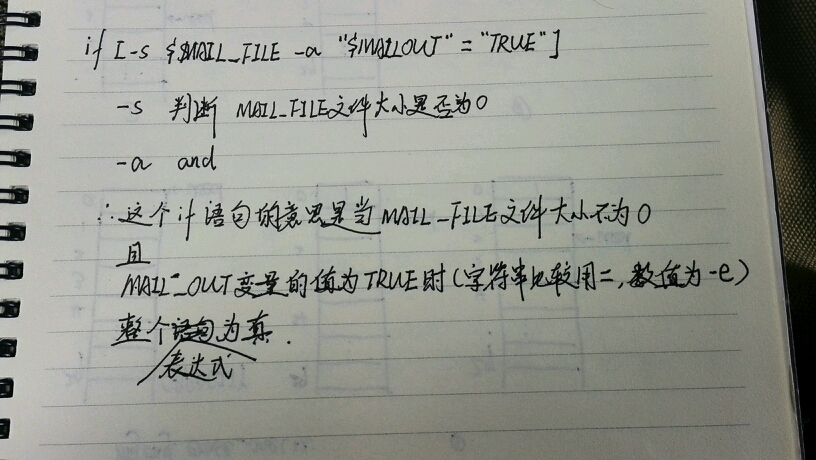 if [ -s $MAIL_FILE -a "$MAILOUT" = "TRUE" ]
-s 判断 MAIL_FILE文件大小是否为0
-a and
∴这个if语句的意思是当MAIL_FILE文件大小不为0
且
MAIL_OUT变量的值为TRUE时(字符串比较用=,数值为-e)
整个语句为真.
表达式